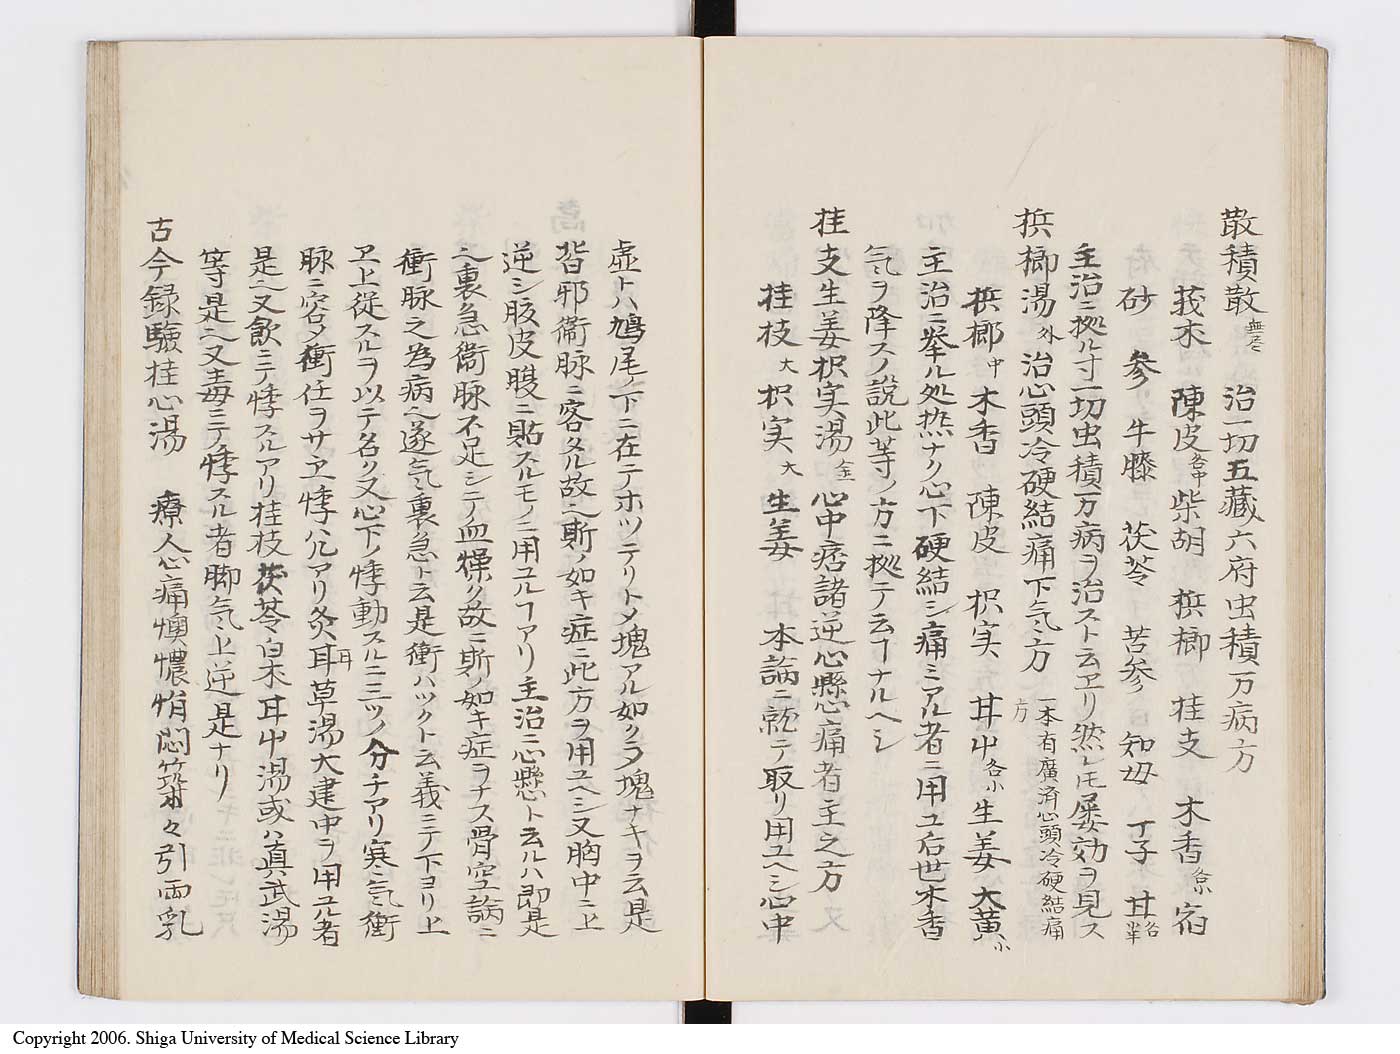 散積散 無名 治一切五藏六府虫積万病方
莪朮 陳皮各中 柴胡 梹榔 桂支 木香 宿
砂 参 牛膝 茯苓 苦参 知母 丁子 甘各
主治ニ拠ル寸一切虫積万病ヲ治スト云ヱリ然レ𪜈屡効ヲ見ス
梹榔湯外 治心頭冷硬結痛下气方 一本有廣済心頭冷硬結痛方
梹榔中 木香 陳皮 枳実 甘艸各小 生姜 大黄小
主治ニ挙ル処热ナク心下硬結シ痛ミアル者ニ用ユ后世木香
气ヲ降スノ説此等ノ方ニ拠テ云ヿナルヘシ
桂支生姜枳実湯金 心中痞諸逆心懸心痛者主之方
桂枝大 枳実大 生姜 本論ニ就テ取リ用ユヘシ心中
虚トハ鳩尾ノ下ニ在テホツテリトメ塊アル如クヲ塊ナキヲ云是
皆邪衝脉ニ客タル故之斯ノ如キ症ニ此方ヲ用ユヘシ又胸中ニ上
逆シ腹皮腹ニ貼スルモノニ用ユルヿアリ主治ニ心懸ト云ルハ即是
之裏急衝脉不足シテ血燥ク故ニ斯ノ如キ症ヲナス骨空論ニ
衝脉之為病之逐气裏急ト云是衝ハツクト云義ニテ下ヨリ上
ヱ上従スルヲ以テ名ク又心下ノ悸動スルニ三ツノ分チアリ寒气衝
脉ニ容メ衝任ヲサヱ悸ルアリ灸耳草湯大建中ヲ用ユル者
是之又飲ミテ悸スルアリ桂枝茯苓白朮耳艸湯或ハ真武湯
等是之又毒ミテ悸スル者脚气上逆是ナリ
古今録驗桂心湯 療人心痛懊憹悁悶築々引両乳
Copyright 2006. Shiga University of Medical Science Library